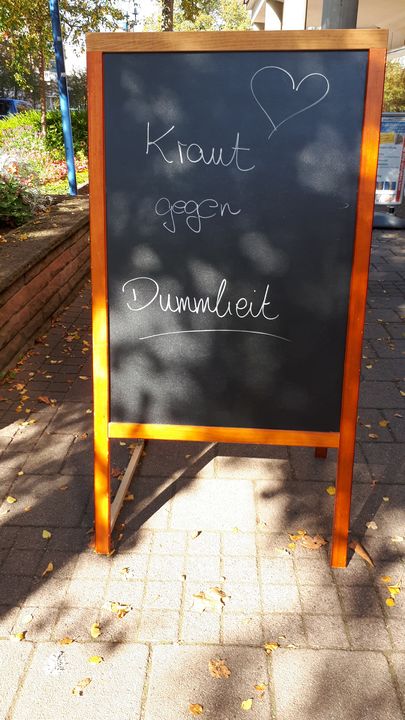 Kraut
gegen
Dummheit